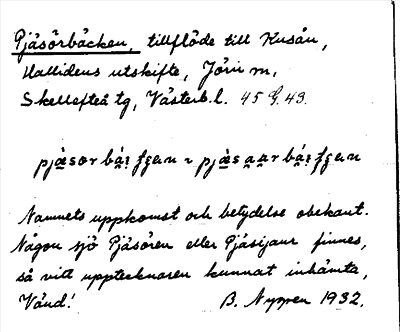 Pjäsörbäcken, tillflöde till Kusån,
Hallidens utskifte, Jörn sn,
Skellefteå tg, Västerb.l. 45 G. 43.
Namnets uppkomst och betydelse obekant.
Någon sjö Pjäsören eller Pjäsijaur finnes,
så vitt upptecknaren kunnat inhämta,
Vänd! B. Nygren 1932.